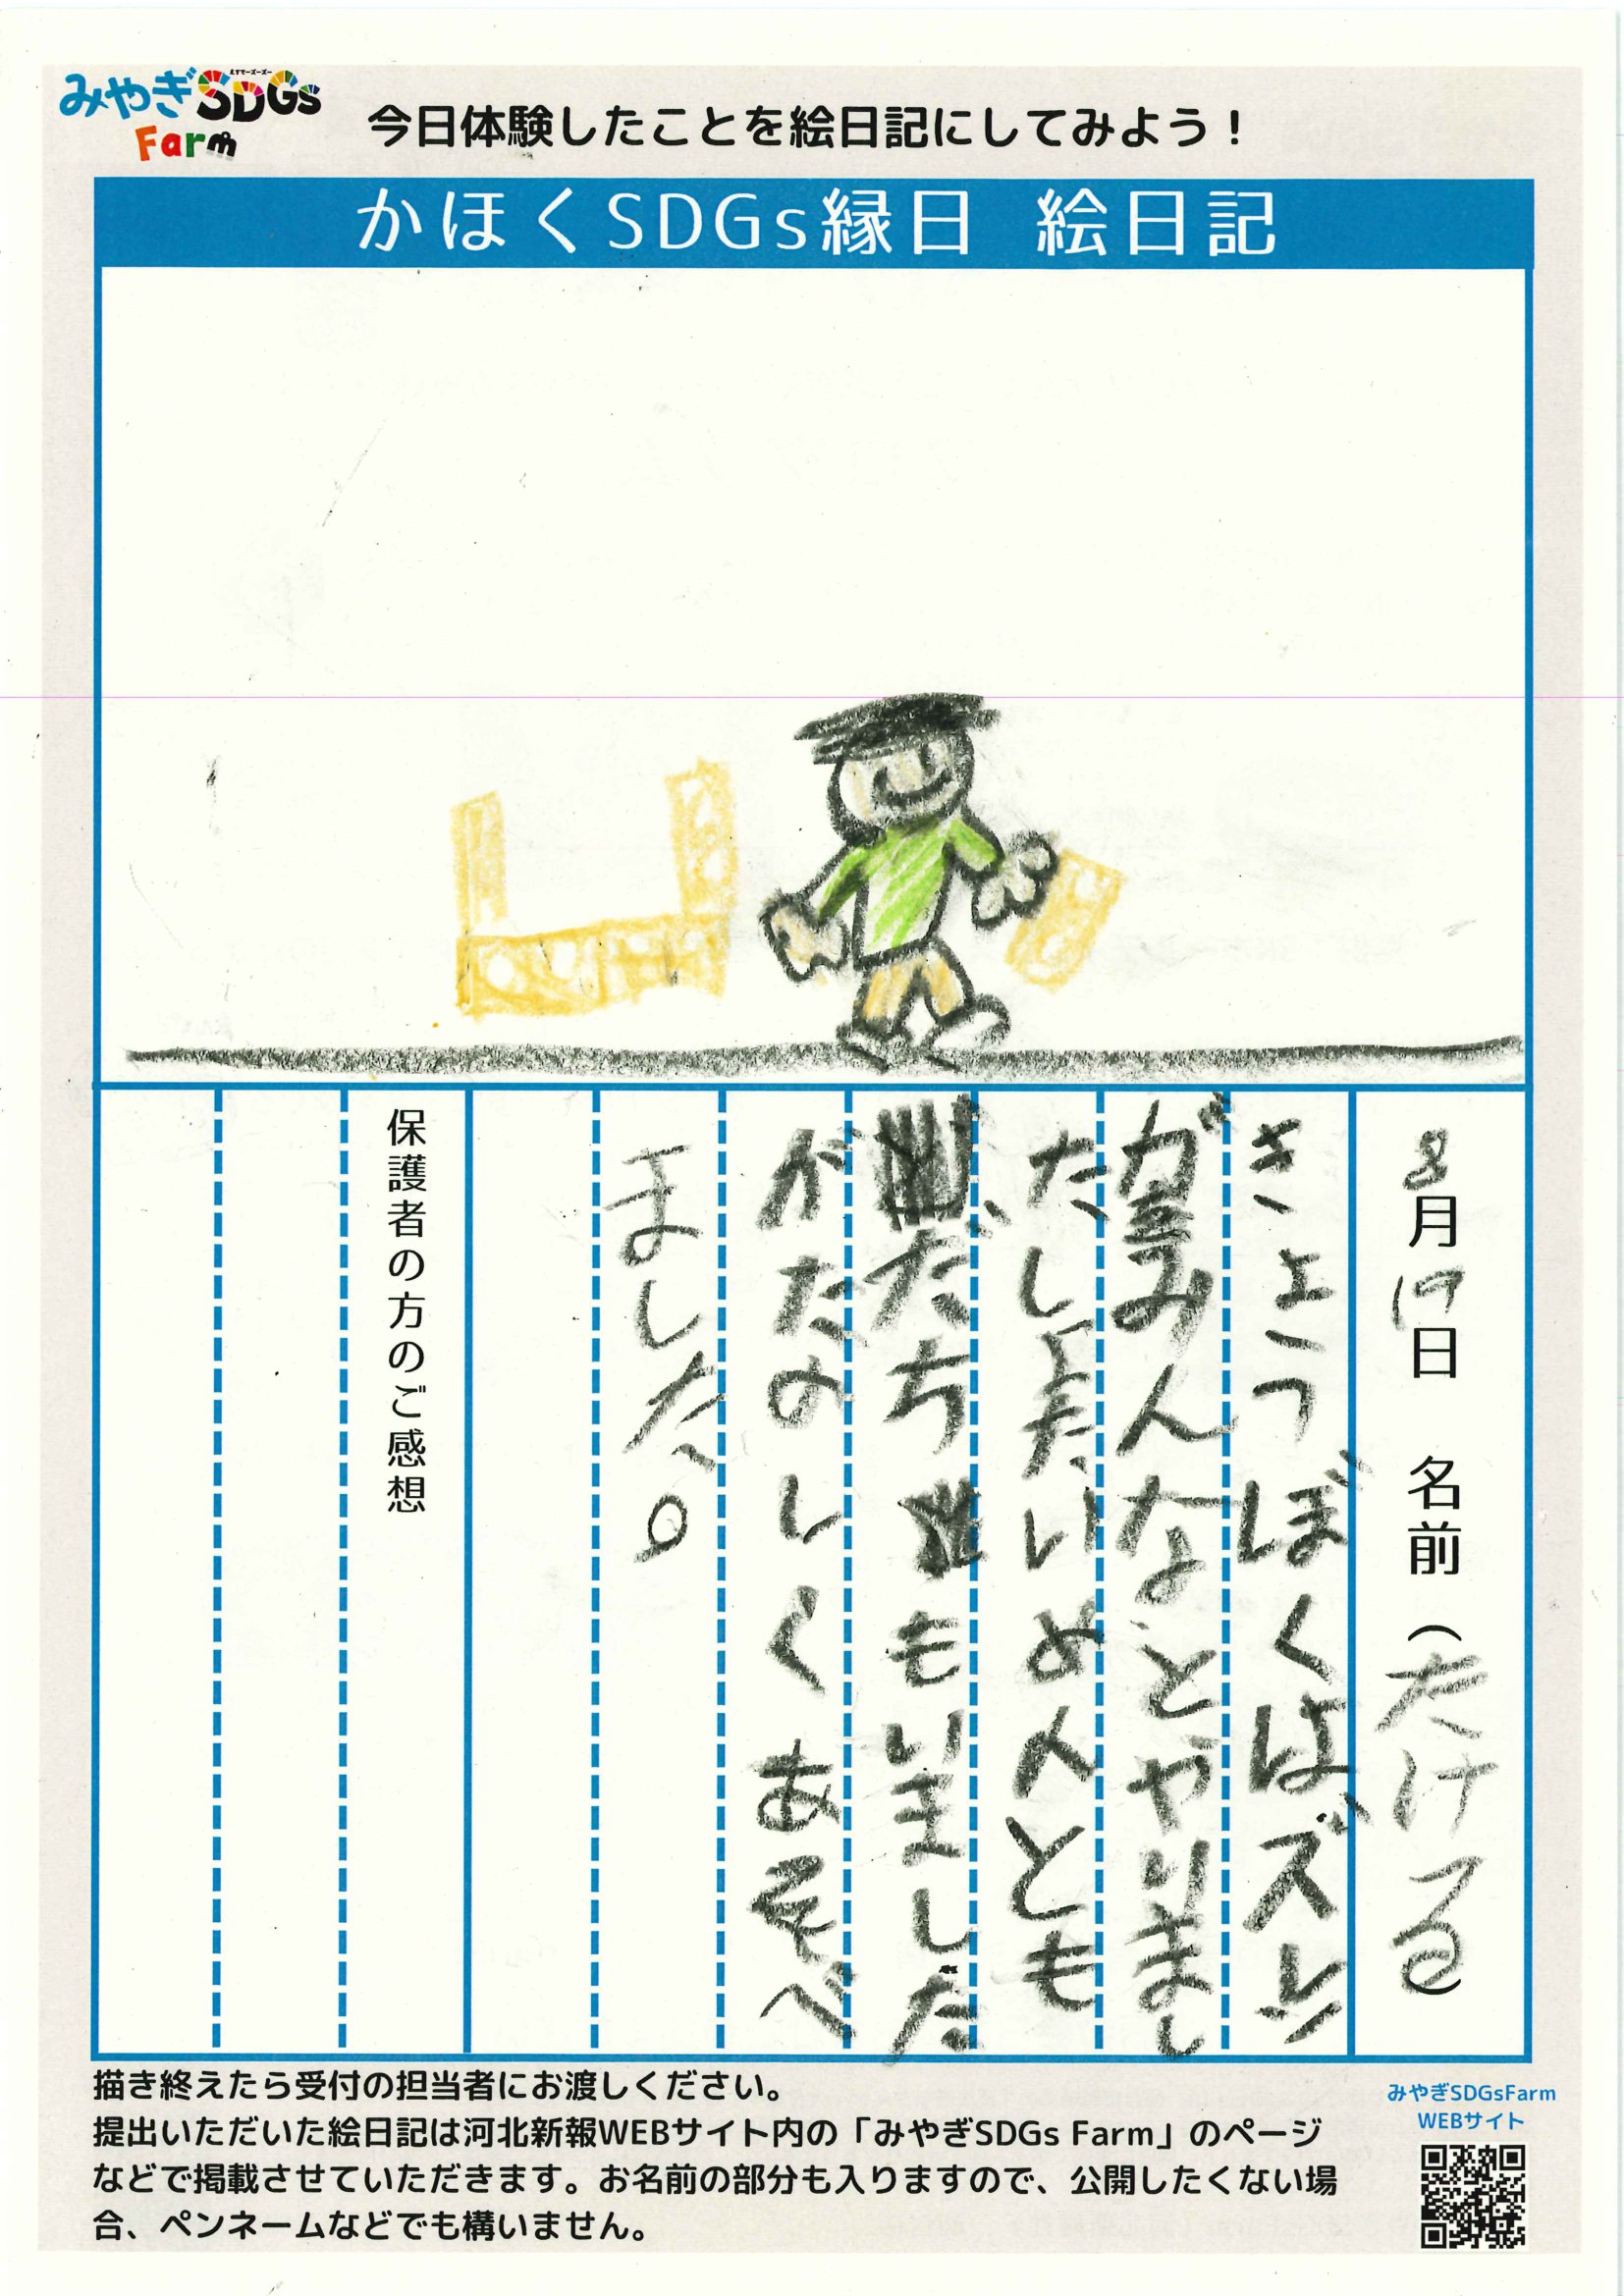 みやぎSDGs
Farm
今日体験したことを絵日記にしてみよう！
かほくSDGs縁日 絵日記
8月19日 名前（たける）
きょうぼくは、
がみんなとやりまし
たしょたいめんとも
だちもいました
がたのしくあそべ
ました。
保護者の方のご感想
描き終えたら受付の担当者にお渡しください。
提出いただいた絵日記は河北新報WEBサイト内の「みやぎSDGs Farm」のページ
などで掲載させていただきます。お名前の部分も入りますので、公開したくない場
合、ペンネームなどでも構いません。
みやぎSDGsFarm
WEBサイト